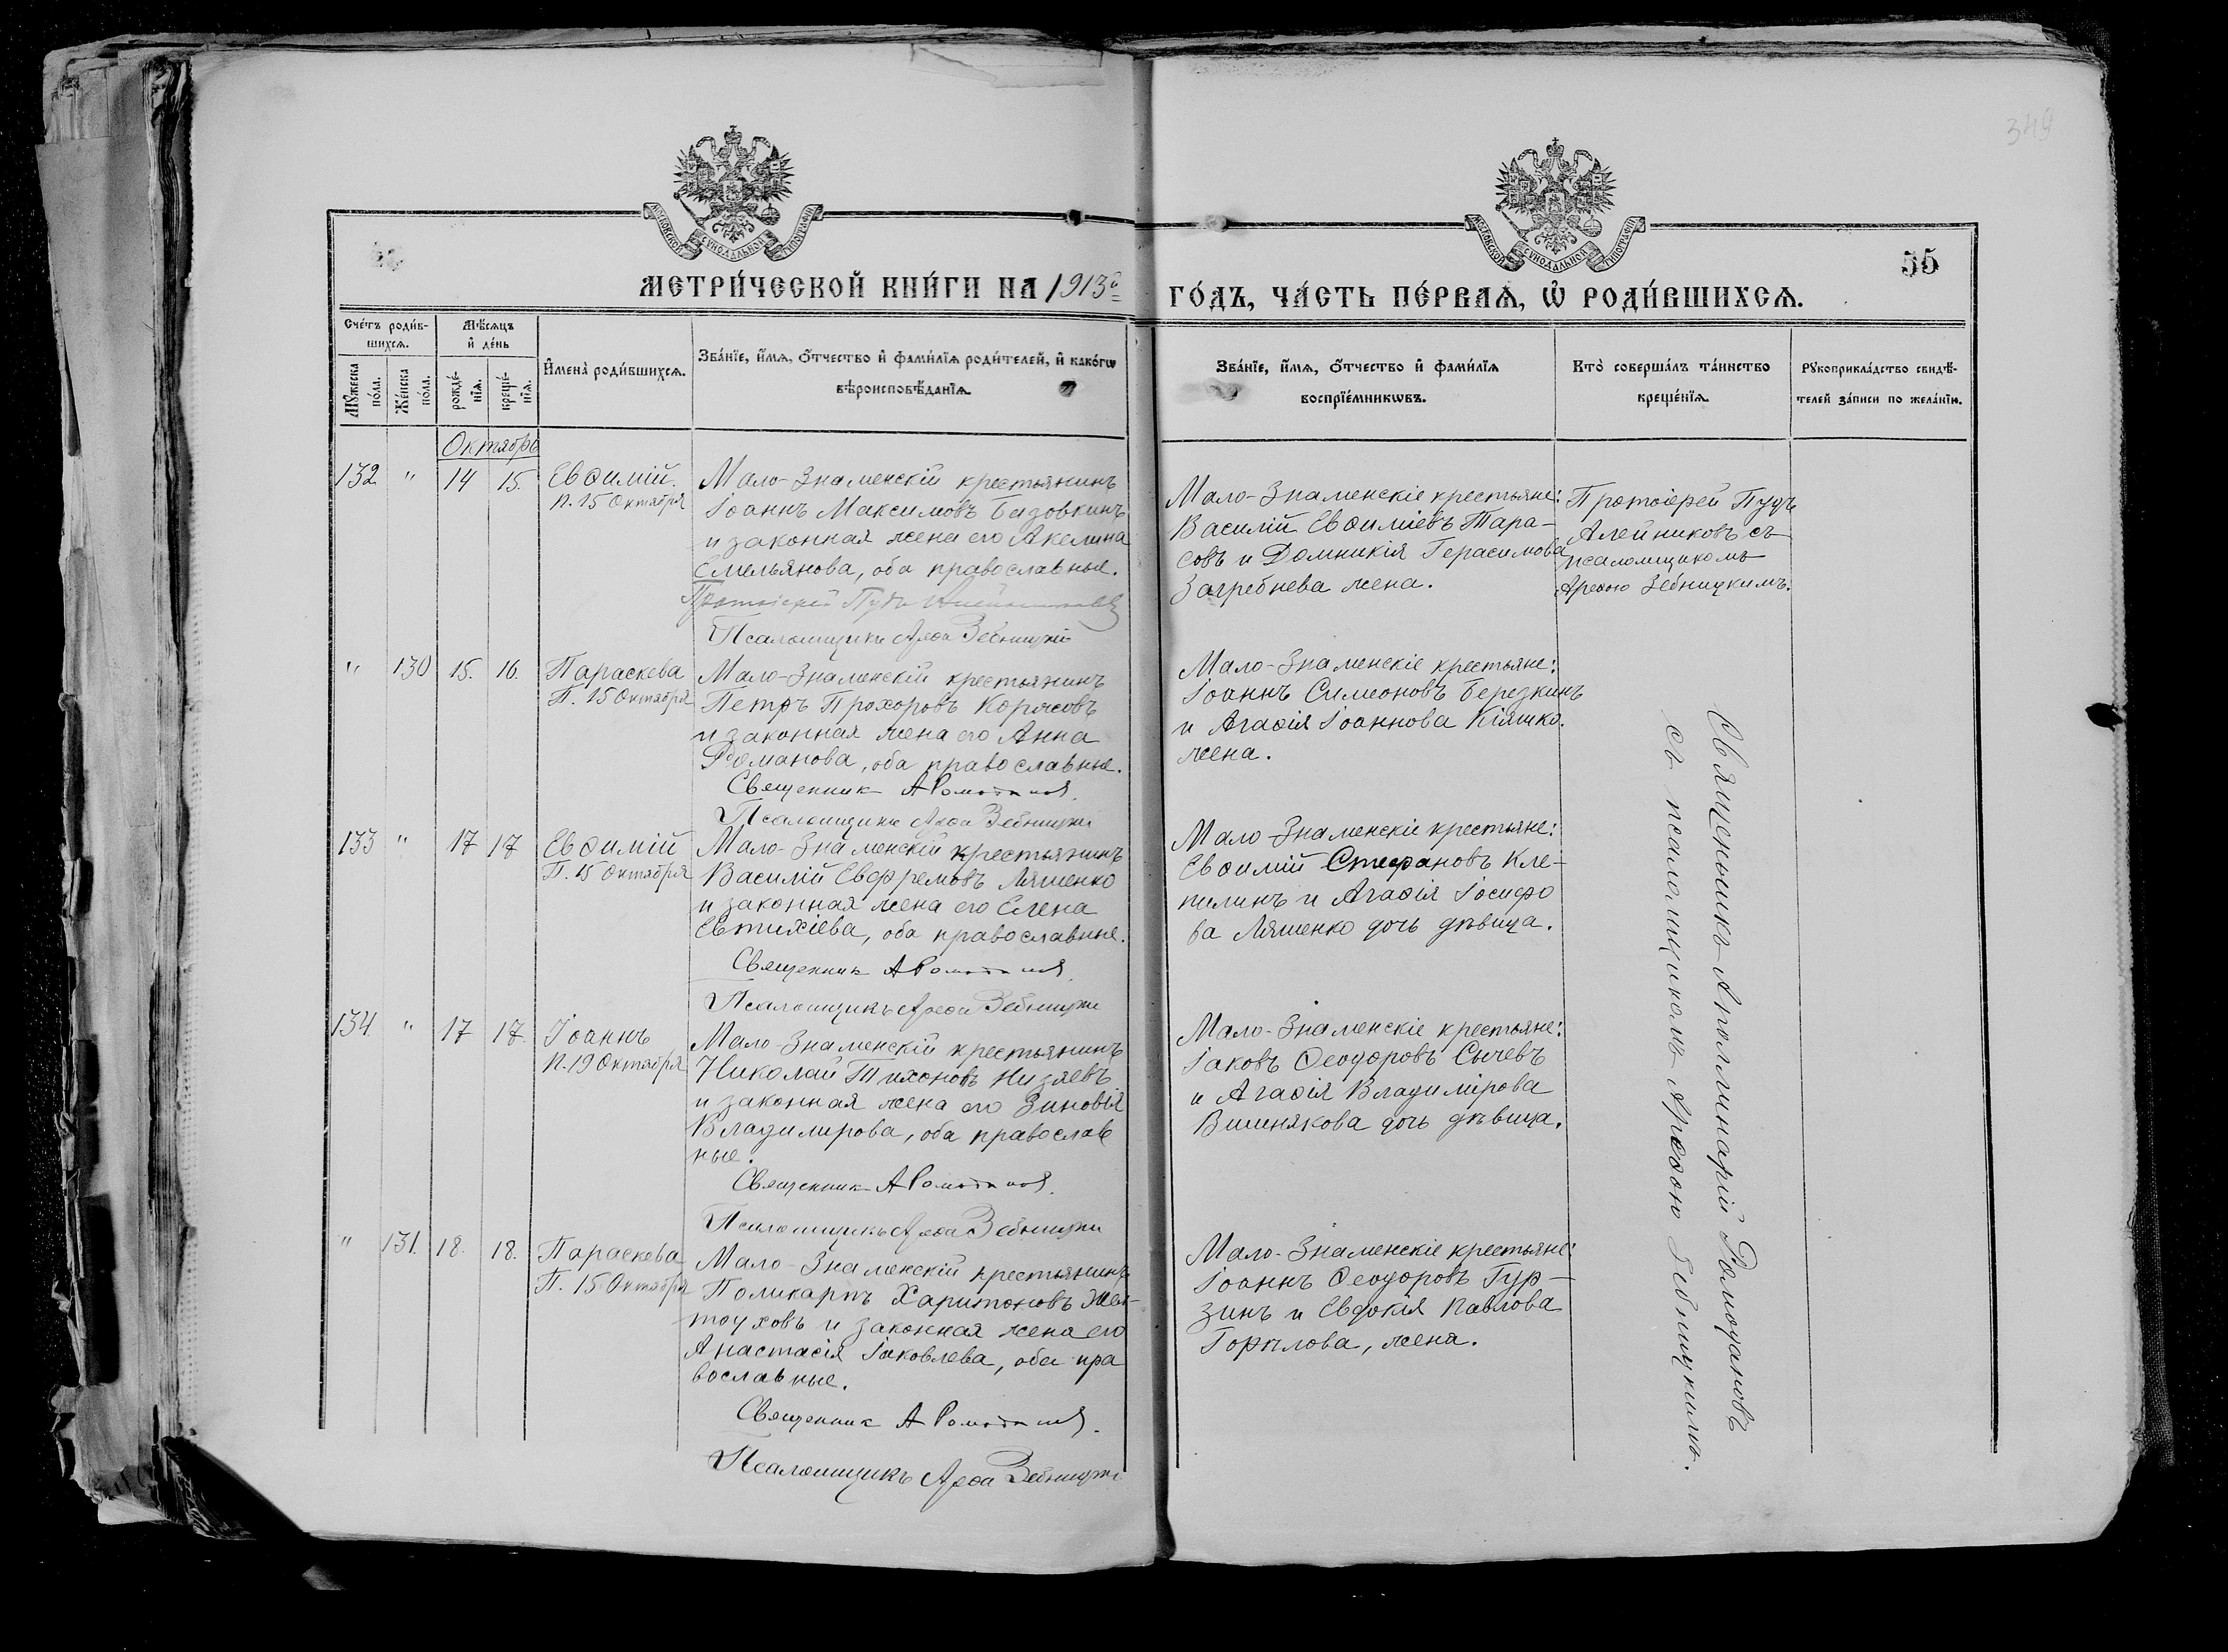 349
МОСКОВСКОЙ СУНОДАЛЬНОЙ ТИПОГРАФІИ
МОСКОВСКОЙ СУНОДАЛЬНОЙ ТИПОГРАФІИ
55
МЕТРИ́ЧЕСКОЙ КНИ́ГИ НА 1913й
ГО́ДЪ, ЧА́СТЬ ПЕ́РВАѦ, Ѡ҆ РОДИ́ВШИХСѦ.
Сче́тъ роди́в-
шихсѧ.
Мꙋ́жеска
по́ла.
Же́нска
по́ла.
Мѣ́сѧцъ
и҆ де́нь
рожде́-
нїѧ.
креще́-
нїѧ.
И҆мена̀ роди́вшихсѧ.
Зва́нїе, и҆́мѧ, ѻ҆́тчество и҆ фами́лїѧ роди́телей, и҆ како́гѡ
вѣроисповѣ́данїѧ.
Зва́нїе, и҆́мѧ, ѻ҆́тчество и҆ фами́лїѧ
воспрїе́мникѡвъ.
Кто̀ соверша́лъ та́инство
креще́нїѧ.
Рꙋкоприкла́дство свидѣ́-
телей за́писи по жела́нїю.
Октябрь
132 " 14 15. Евѳимій.
п. 15 Октября
Мало-Знаменскій крестьянинъ
Іоаннъ Максимовъ
и законная жена его Акелина
Емельянова, оба православные.
Протоіерей Пудъ Алейниковъ
Псаломщикъ Ареѳа Зебницкій
Мало-Знаменскіе крестьяне:
Василій Евѳиміевъ Тара-
совъ и Домникія Герасимова
Загребнева жена.
Протоіерей Пудъ
Алейниковъ съ
псаломщикомъ
Ареѳою Зебницкимъ.
" 130 15. 16. Параскева
П. 15 Октября
Мало-Знаменскій крестьянинъ
Петръ Прохоровъ
и законная жена его Анна
Романова, оба православные.
Священник А Ромоданов
Псаломщикъ Ареѳа Зебницкій
Мало-Знаменскіе крестьяне:
Іоаннъ Симеоновъ Березкинъ
и Агаѳія Іоаннова Кіяшко.
жена.
133 " 17 17 Евѳимій
П. 15 Октября
Мало-Знаменскій крестьянинъ
Василій Евфремовъ Ляшенко
и законная жена его Елена
Евтихіева, оба православные.
Священник А Ромоданов
Псаломщикъ Ареѳа Зебницкій
Мало-Знаменскіе крестьяне:
Евѳимій Стефановъ Кле-
пилинъ и Агаѳія Іосифо
ва Ляшенко дочь дѣвица.
134 " 17 17. Іоаннъ
п. 19 Октября
Мало-Знаменскій крестьянинъ
Николай Тихоновъ Низяевъ
и законная жена его Зиновія
Владимирова, оба православ
ные.
Священник А Ромоданов
Псаломщикъ Ареѳа Зебницкій
Мало-Знаменскіе крестьяне:
Іаковъ Ѳеодоровъ Сычевъ
и Агаѳія Владимірова
Вишнякова дочь дѣвица.
" 131. 18. 18. Параскева
П. 15 Октября
Мало-Знаменскій крестьянинъ
Поликарпъ Харитоновъ Жел-
тоуховъ и законная жена его
Анастасія Іаковлева, оба пра
вославные.
Священник А Ромоданов
Псаломщикъ Ареѳа Зебницкій
Мало-Знаменскіе крестьяне:
Іоаннъ Ѳеодоровъ Гур-
зинъ и Евдокія Павлова
Горѣлова, жена.
Священникъ Аполлинарій Ромодановъ
съ псаломщикомъ Ареѳою Зебницкимъ.